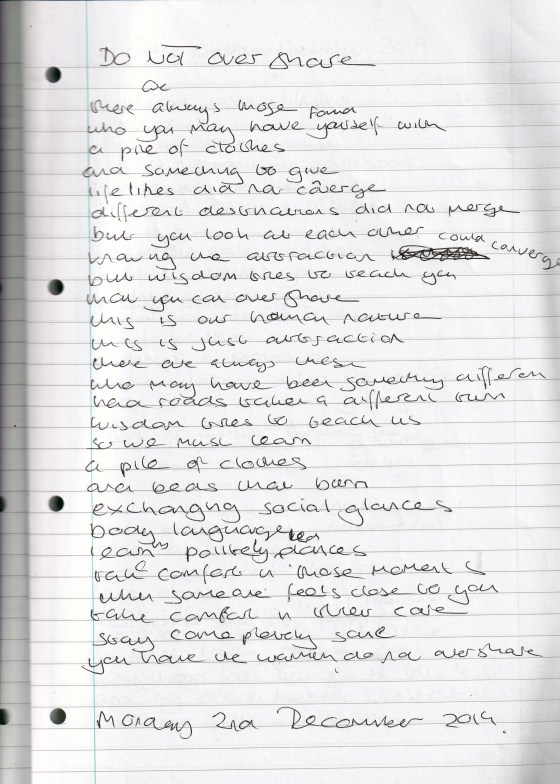 Do Not over share
are
there always those found
who you may have yourself with
a pile of clothes
and something to give
life lines did not converge
different destinations did not merge
but you look at each other could converge
knowing the attraction
but wisdom tries to teach you
that you can over share
this is our human nature
this is just attraction
there are always these
who may have been something different
had roads taken a different turn
wisdom tries to teach us
so we must learn
a pile of clothes
and beds that burn
exchanging social glances
body language
learn politely dances
take comfort in those moments
when someone feels close to you
take comfort in their care
stay completely sane
you have the warmth do not overshare
Monday 2nd December 2019.